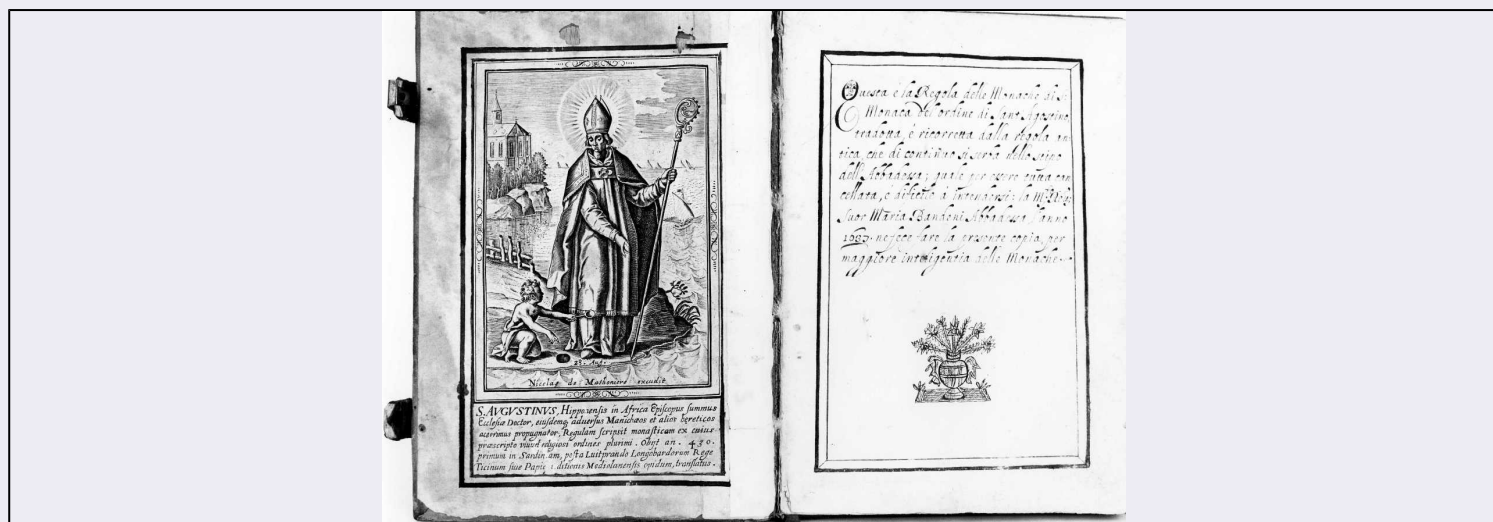 28. Aug.
Nicolas de Mathoniere excudit
S. AVGVSTINVS, Hipponensis in Africa Episcopus summus
Ecclesiæ Doctor, eiusdemq; adversus Manichæos et alios hereticos
acerrimus propugnator, Regulam scripsit monasticam ex cuius
præscripto vivunt religiosi ordines plurimi. Obijt an. 430.
primum in Sardiniam, postea Luitprando Longobardorum Rege
Ticinum sive Papiæ ditionis Mediolanensis opidum, translatus.
Questa è la Regola delle Monache di S.
Monaca del ordine di Sant Agostino,
tradotta, è ricorretta dalla regola an-
tica, che di continuo si serba nello seino
dell'Abbadessa; quale per essere tutta can-
cellata, è dificile à intendersi: la M. Rda
Suor Maria Bandoni Abbadessa l'anno
ne fece fare la presente copia, per
maggiore intelligentia delle Monache.